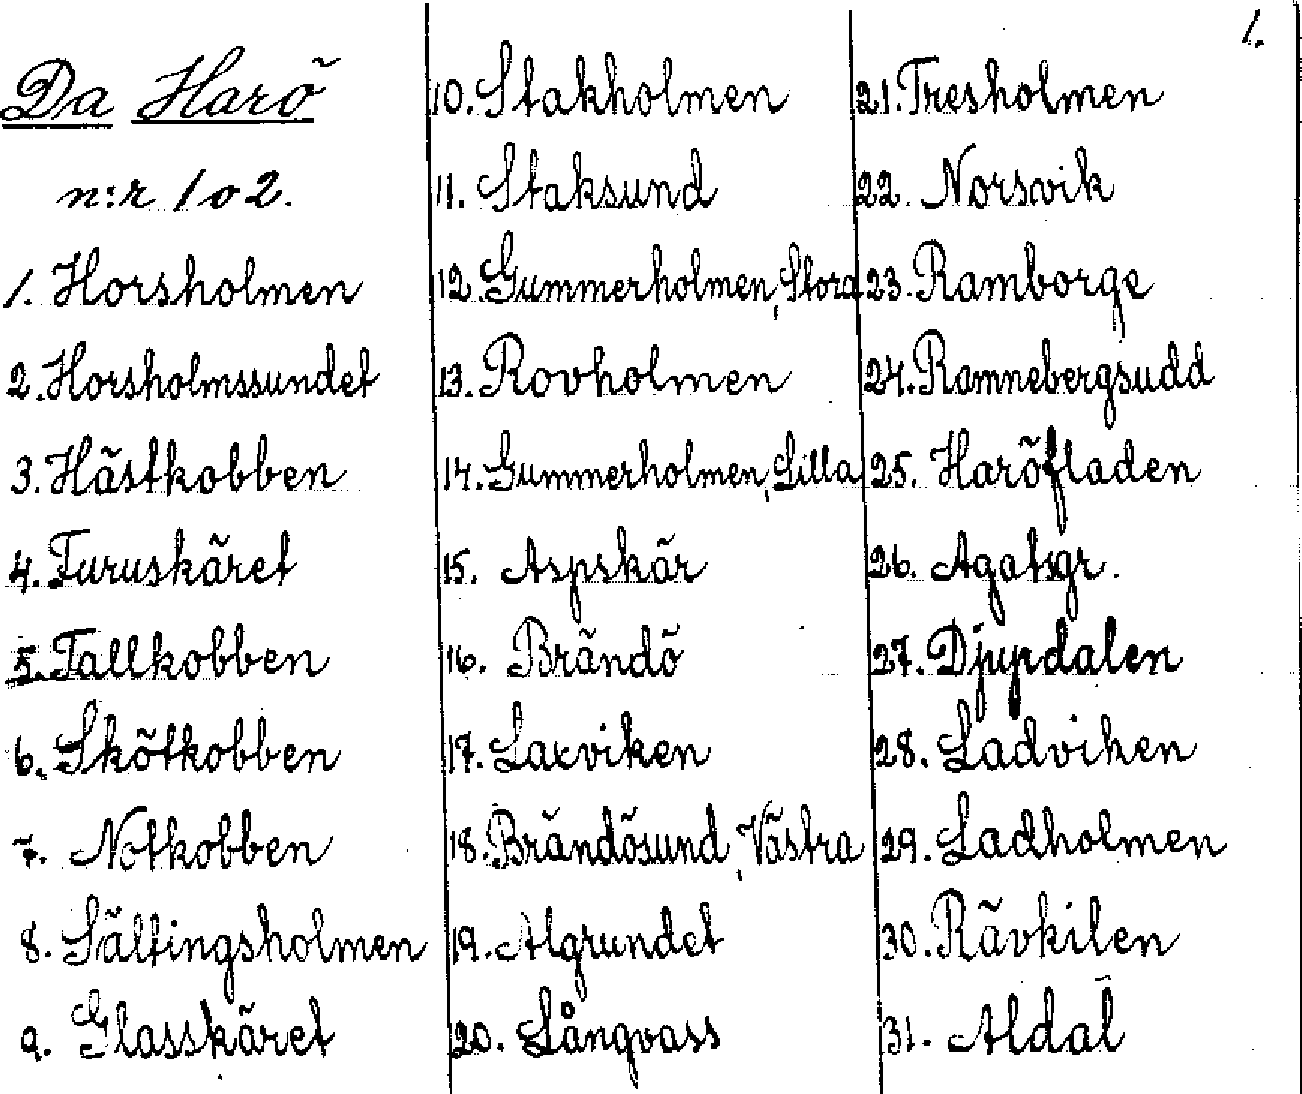 1.
Da Harö
n:r 102.
1. Horsholmen
2. Horsholmssundet
3. Hästkobben
4. Furuskäret
5. Tallkobben
6. Skötkobben
7. Notkobben
8. Sältingsholmen
9. Glasskäret
10. Stakholmen
11. Staksund
12. Gummerholmen, Stora
13. Rovholmen
14. Gummerholmen, Lilla
15. Aspskär
16. Brändö
17. Laxviken
18. Brändösund, Västra
19. Algrundet
20. Långvass
21. Tresholmen
22. Norsvik
23. Ramborge
24. Ramnebergsudd
25. Haröfladen
26. Agatsgr.
27. Djupdalen
28. Ladviken
29. Ladholmen
30. Rävkilen
31. Aldal